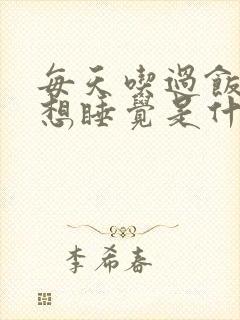 每天喫過飯
想睡覺是什
李希春